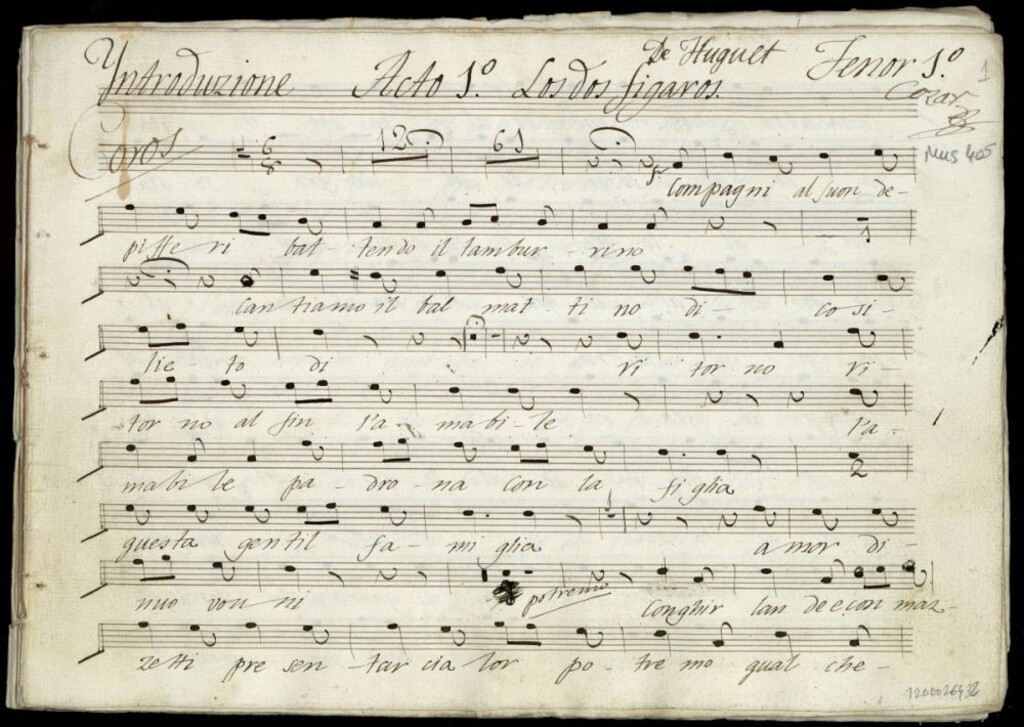 De Huguet
Introduzione Acto 1.º Los dos figaros. Tenor 1.º
1
Coros 6 8 12 61 Mus 405
Compagni al suon de-
pifferi bat- tendo il tambur- rino
cantiamo il bal mat- ti no di- co si-
lie- to di ri tor no ri-
tor no al fin l'a- ma bi- le l'a-
mabi le pa- dro- na con la figlia
questa gentil fa- mi glia a mor di-
nuo vou ni potremo Conghir lan de e con maz-
zetti pre sen- tar cia lor po- tre mo qual che-